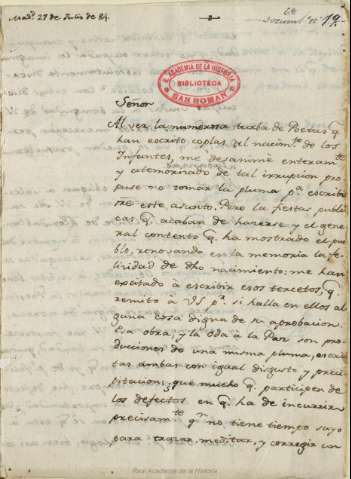 Mad.d 27 de Julio de 84.
19.
R. ACADEMIA DE LA HISTORIA
BIBLIOTECA
SAN ROMAN
Señor
Al ver la numerosa turba de Poetas q.
han escrito coplas al nacim.to de los
Infantes, me desanimé enteram.te
y atemorizado de tal irrupcion pro-
puse no tomar la pluma p.a escribir so-
bre este asunto. Pero las fiestas publi-
cas q. acaban de hacerse y el gene-
ral contento q. ha mostrado el pue-
blo, renovando en la memoria la fe-
licidad de dho nacimiento: me han
excitado à escribir esos tercetos, q.
remito à VS p.a si halla en ellos al
guna cosa digna de su aprobacion.
Esa obra, y la oda à la Paz son pro-
ducciones de una misma pluma, escri-
tas ambas con igual disgusto y preci-
pitacion; que mucho q. participen de
los defectos en q. ha de incurrir
precisam.te q.n no tiene tiempo suyo
para trazar, meditar, y corregir un
Real Academia de la Historia